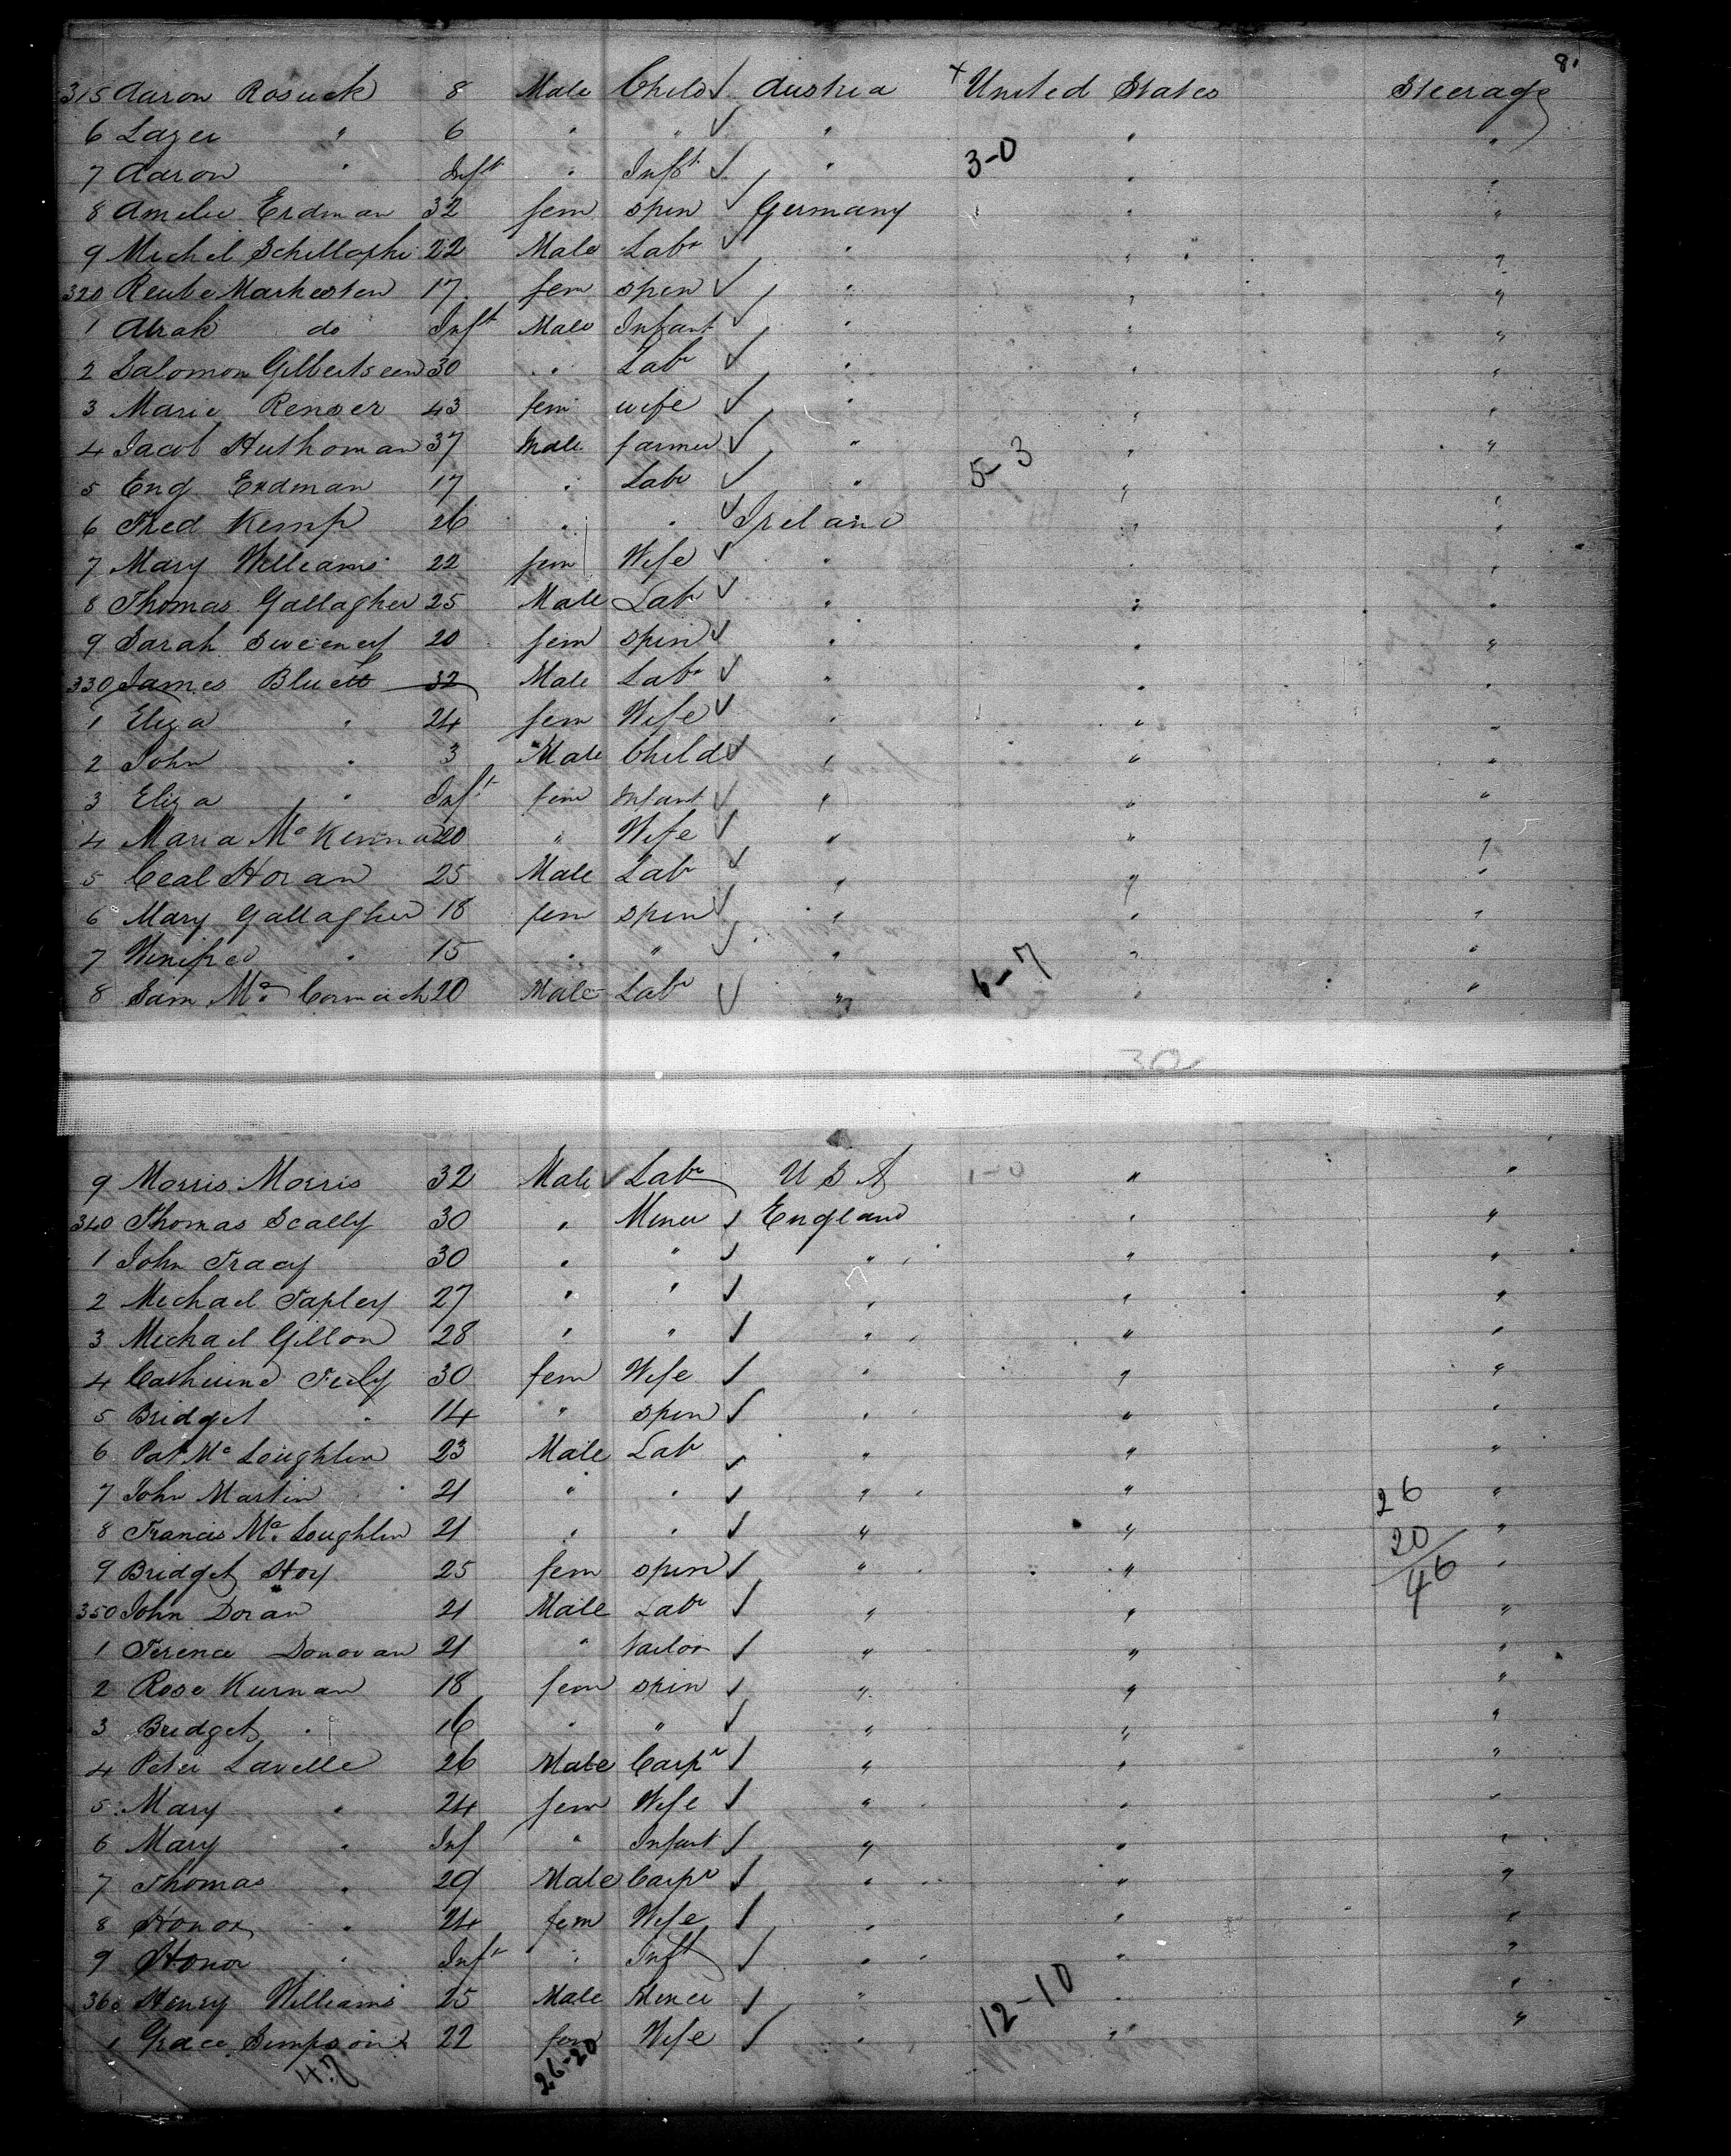 8.
315 Aaron Rosuck 8 Male Child ✓ Austria × United States Steerage
6 Lazer " 6 " " ✓ " " "
7 Aaron " Inft " Inft ✓ " 3-0 " "
8 Amelie Erdman 32 fem spin ✓ Germany " "
9 Michel 22 Male Labr ✓ " " "
320 Reube Markesten 17 fem spin ✓ " " "
1 Abrah do Inft Male Infant ✓ " " "
2 Salomon Gilbertseen 30 " Labr ✓ " " "
3 Marie Renser 43 fem wife ✓ " " "
4 Jacob Huthoman 37 Male farmer ✓ " " "
5 Eng Erdman 17 " Labr ✓ " 5-3 " "
6 Fred Kemp 26 " " ✓ Ireland " "
7 Mary Williams 22 fem Wife ✓ " " "
8 Thomas Gallagher 25 Male Labr ✓ " " "
9 Sarah Sweeney 20 fem spin ✓ " " "
330 James Bluett 32 Male Labr ✓ " " "
1 Eliza " 24 fem Wife ✓ " " "
2 John " 3 Male Child ✓ " " "
3 Eliza " Inft fem Infant ✓ " " "
4 Maria McKenna 20 " Wife ✓ " " "
5 Ceal Horan 25 Male Labr ✓ " " "
6 Mary Gallagher 18 fem spin ✓ " " "
7 Winifred " 15 " " ✓ " " "
8 Sam McCormick 20 Male Labr ✓ " 6-7 " "
30
9 Morris Morris 32 Male ✓ Labr U S A 1-0 " "
340 Thomas Scally 30 " Miner ✓ England " "
1 John Tracy 30 " " ✓ " " "
2 Michael Tapley 27 " " ✓ " " "
3 Michael Gillon 28 " " ✓ " " "
4 Catherine Tully 30 fem Wife ✓ " " "
5 Bridget " 14 " spin ✓ " " "
6 Pat McLoughlin 23 Male Labr ✓ " " "
7 John Martin 21 " " ✓ " " 26 "
8 Francis McLoughlin 21 " " ✓ " " 20 "
9 Bridget Hoy 25 fem spin ✓ " " 46 "
350 John Doran 21 Male Labr ✓ " " "
1 Terence Donovan 21 " tailor ✓ " " "
2 Rose Kurnan 18 fem spin ✓ " " "
3 Bridget " 16 " " ✓ " " "
4 Peter Lavelle 26 Male Carpr ✓ " " "
5 Mary " 24 fem Wife ✓ " " "
6 Mary " Inf " Infant ✓ " " "
7 Thomas " 29 Male Carpr ✓ " " "
8 Honor " 24 fem Wife ✓ " " "
9 Honor " Inft " Inft ✓ " " "
360 Henry Williams 25 Male Miner ✓ " 12-10 " "
1 Grace Simpson 22 fem Wife ✓ " " "
47 26-20